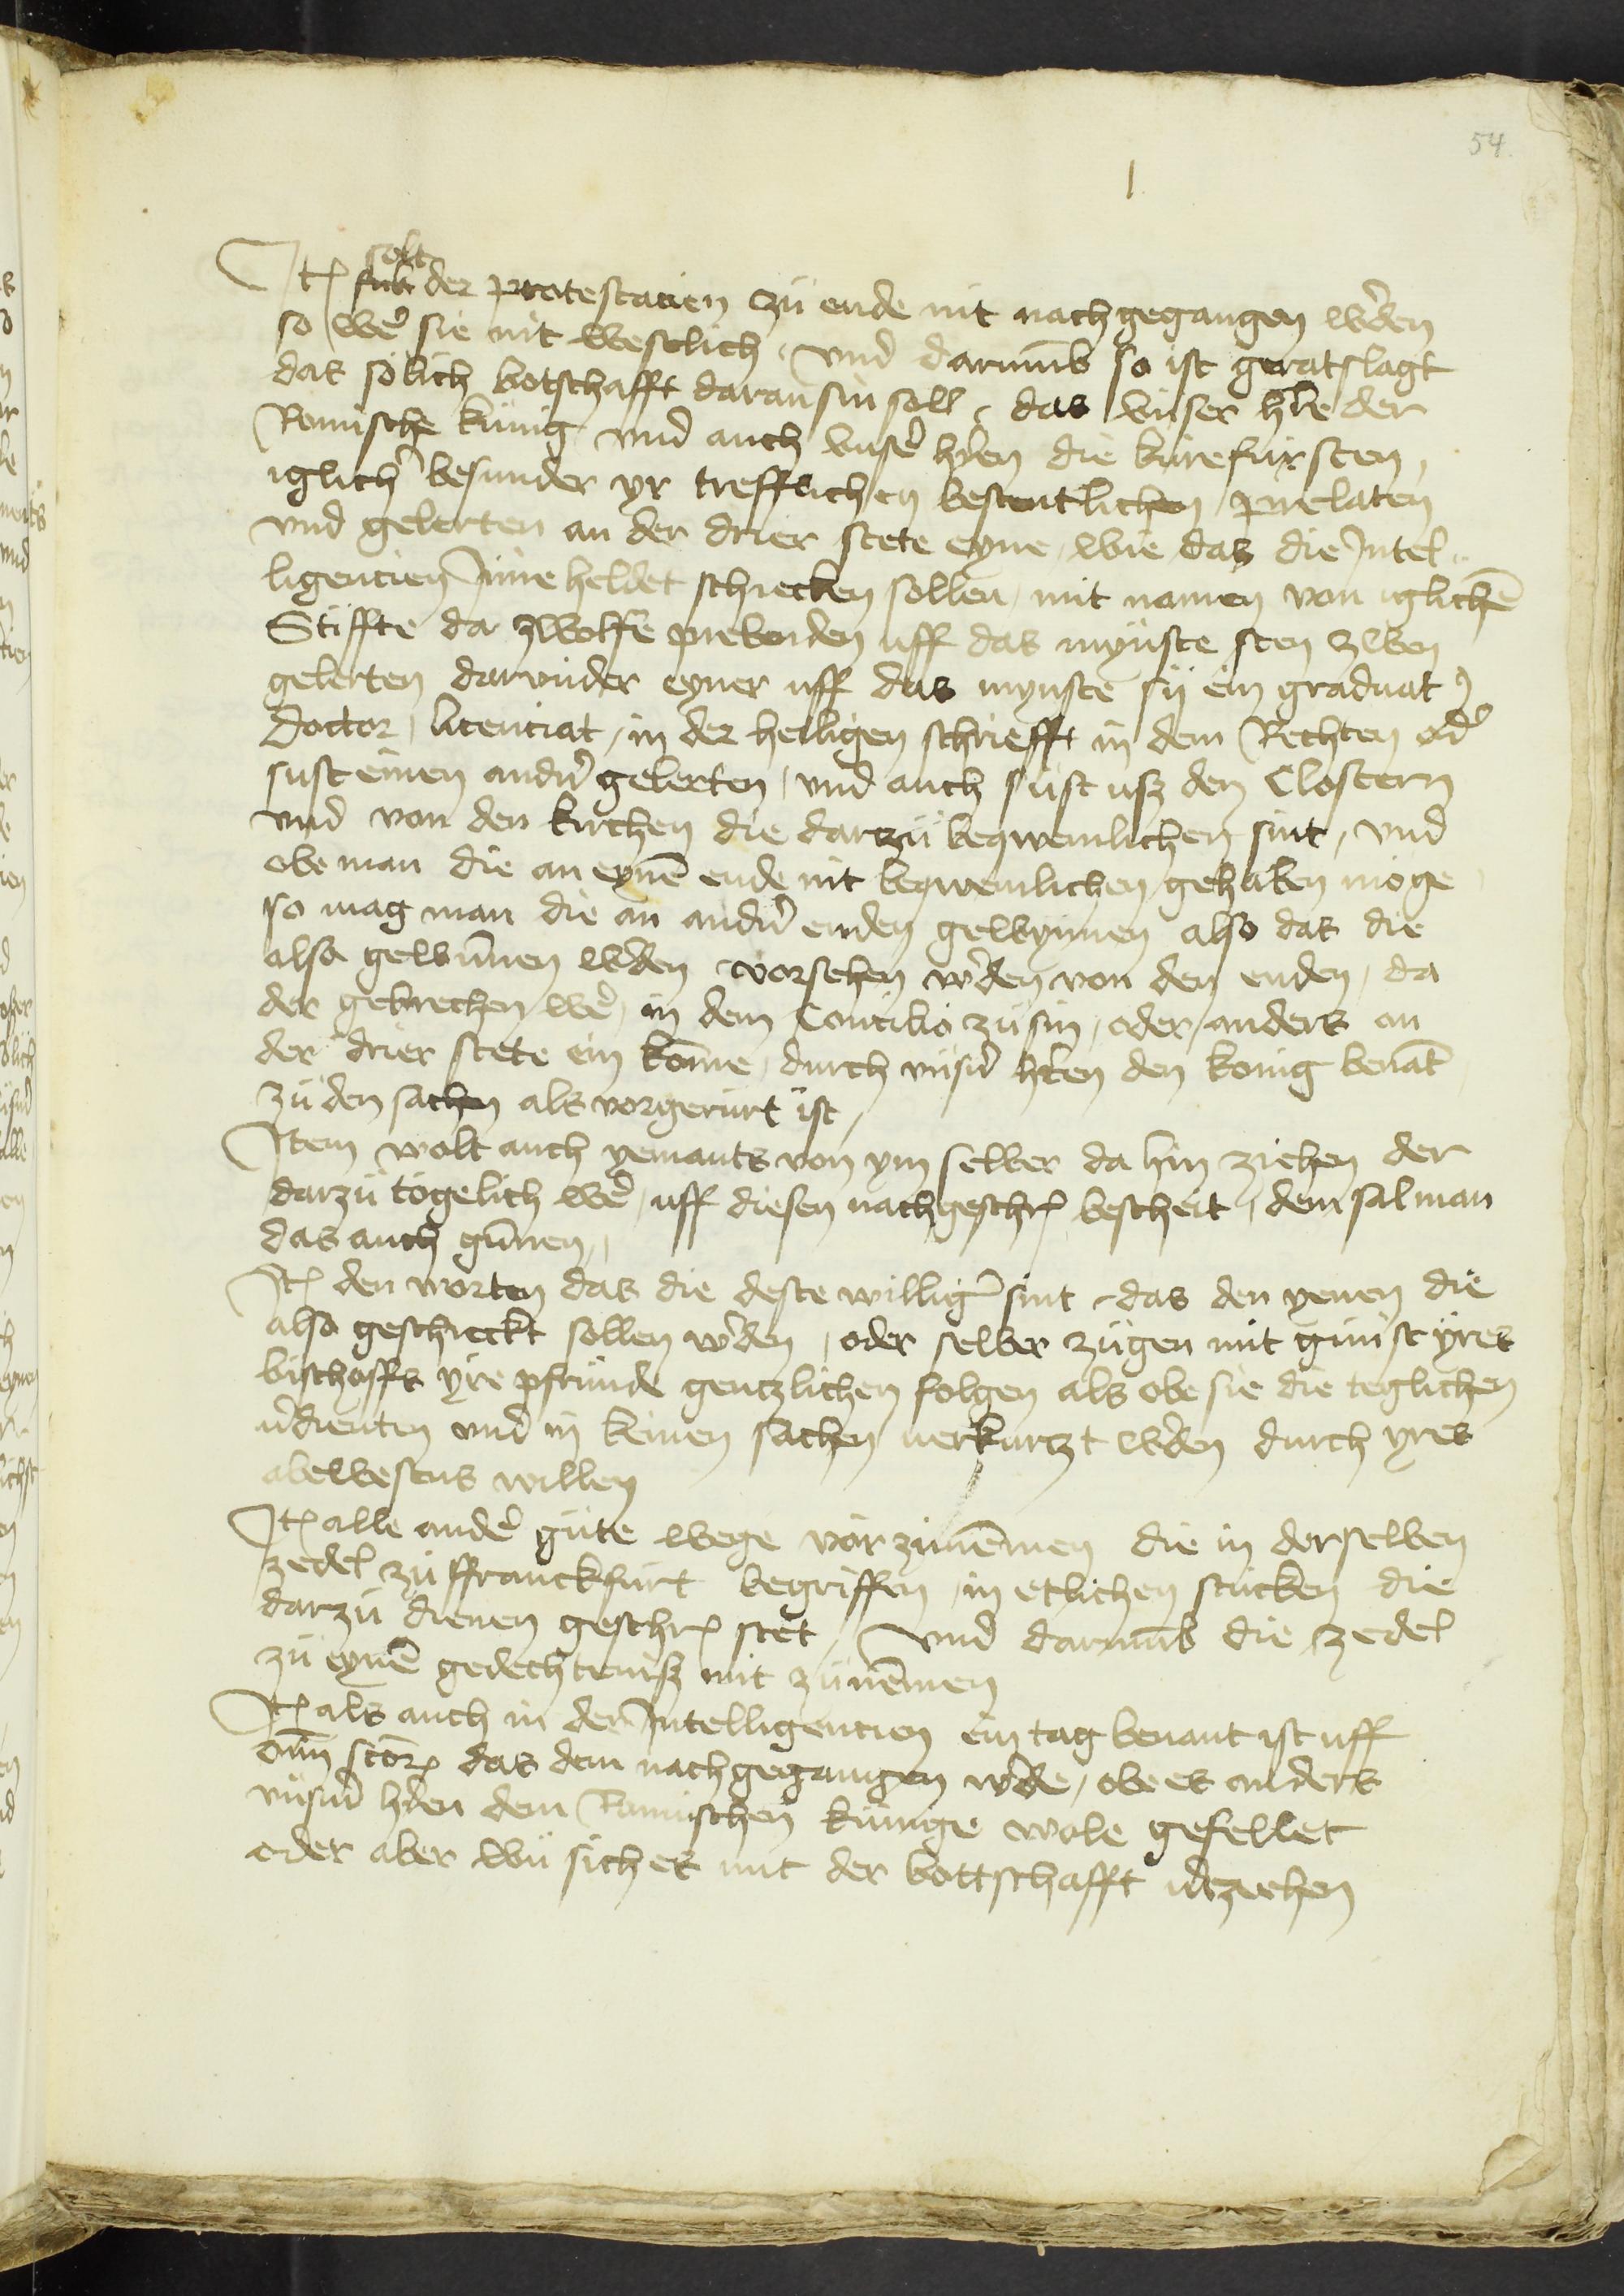 54
1
solt
Itē der protestacien zü ende nit nach gegangen wͤden
so weͤ sie nit weslich, vnd darumb so ist geratslagt
das solich botschafft daran sin soll, das vnser hͤre der
Romische künig vnd auch vnsͤ hͤren die kürefürsten,
iglichͤ besunder yr trefflichen bestentlichen prelaten
vnd gelerten an der drier stete eyne, wie das die Intel-
ligencien Inne heldet schiecken sollen, mit namen von iglichē
Stiffte da zwolffe prebenden uff das mynste sten zwen
gelerten darunder eyner uff das mynste sÿ ein graduat
Doctor, licenciat, in der heiligen schriefft in dem Rechten odͤ
sust einen andͤn gelerten, vnd auch sust usz den Clostern
vnd von den kirchen die darzü beqwemlichen sint, vnd
obe man die an eynē ende nit beqwemlichen gehaben möge
so mag man die an andͤn enden gewynnen also das die
also gewūnen wͤden vorsehen wͤden von den enden, da
der gebrechen weͤ, in dem Concilio zü sin, oder anders an
der drier stete ein kome, durch vnsͤn hͤren den konig benāt
zü den sachen als vorgerürt ist,
Item wolt auch yemants von ym selber da hin ziehen der
darzü togelich weͤ, uff diesen nachgeschrē bescheit, dem sal man
das auch gūnen,
Itē den worten das die deste williger sint, das den yenen die
also geschieckt sollen wͤden, oder selber zügen mit gunst yres
bischoffs yre pfründe gentzlichen folgen als obe sie die teglichen
vͤdienten vnd in keinen sachen uerkurtzt wͤden durch yres
abewesens willen
Itē alle anderͤ güte wege vor zunēmen die in derselben
zedel zü ffranckfurt begriffen, in etlichen stucken die
darzü dienen geschrē stet, vnd darumb die zedel
zü eynē gedechteniss mit zünēmen
Itē als auch in der Intelligencien ein tag benant ist uff
das dem nachgegangen wͤde, obe es anders
vnsͤm hͤren dem Romischen künige wole gefellet
oder aber wü sich es mit der bottschafft vͤtziehen